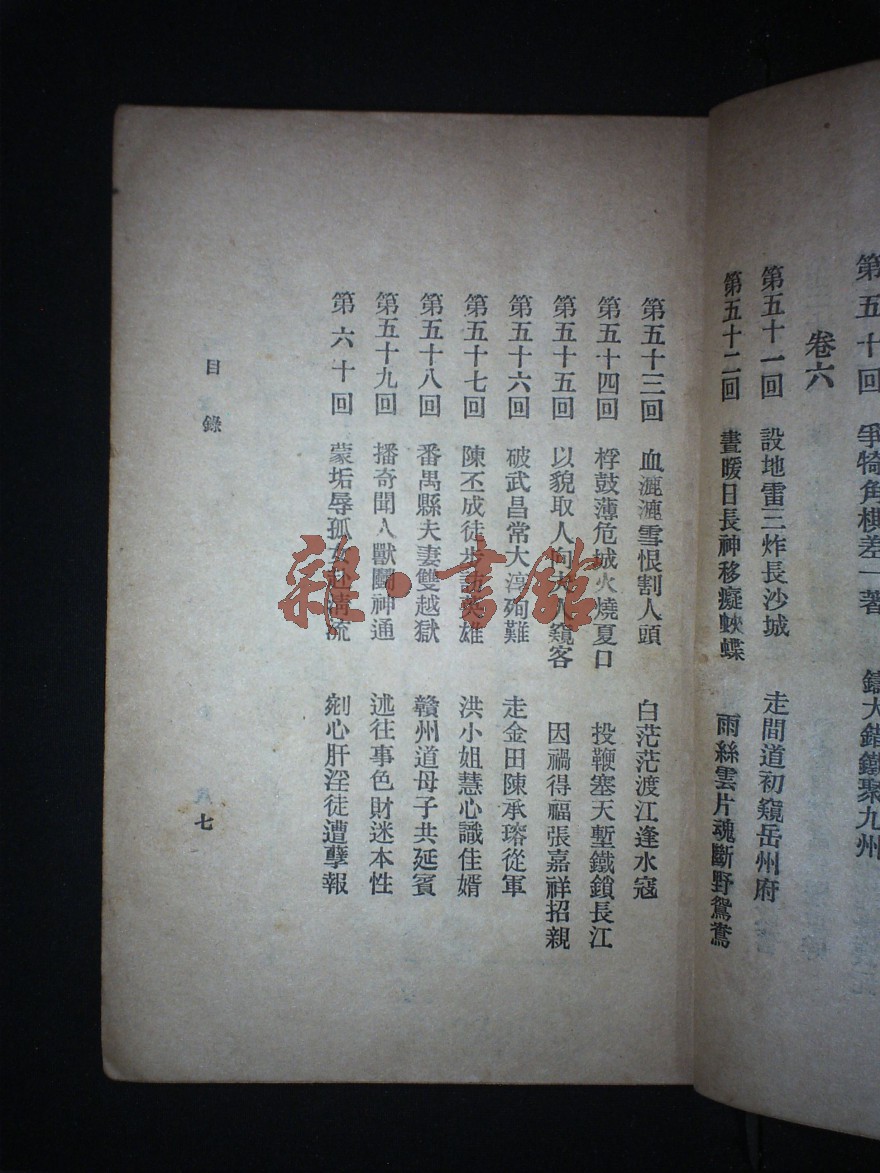 第五十回　爭犄角棋差一著　鑄大錯鐵聚九州
卷六
第五十一回　設地雷三炸長沙城　走間道初窺岳州府
第五十二回　晝暖日長神移癡蛺蝶　雨絲雲片魂斷野鴛鴦
第五十三回　血漉漉雪恨割人頭　白茫茫渡江逢水寇
第五十四回　桴鼓薄危城火燒夏口　投鞭塞天塹鐵鎖長江
第五十五回　以貌取人向大人窺客　因禍得福張嘉祥招親
第五十六回　破武昌常大淳殉難　走金田陳承瑢從軍
第五十七回　陳丕成徒步訪英雄　洪小姐慧心識佳婿
第五十八回　番禺縣夫妻雙越獄　贛州道母子共延賓
第五十九回　播奇聞人獸鬭神通　述往事色財迷本性
第六十回　蒙垢辱孤女赴清流　剜心肝淫徒遭孽報
目錄
七
雜·書館